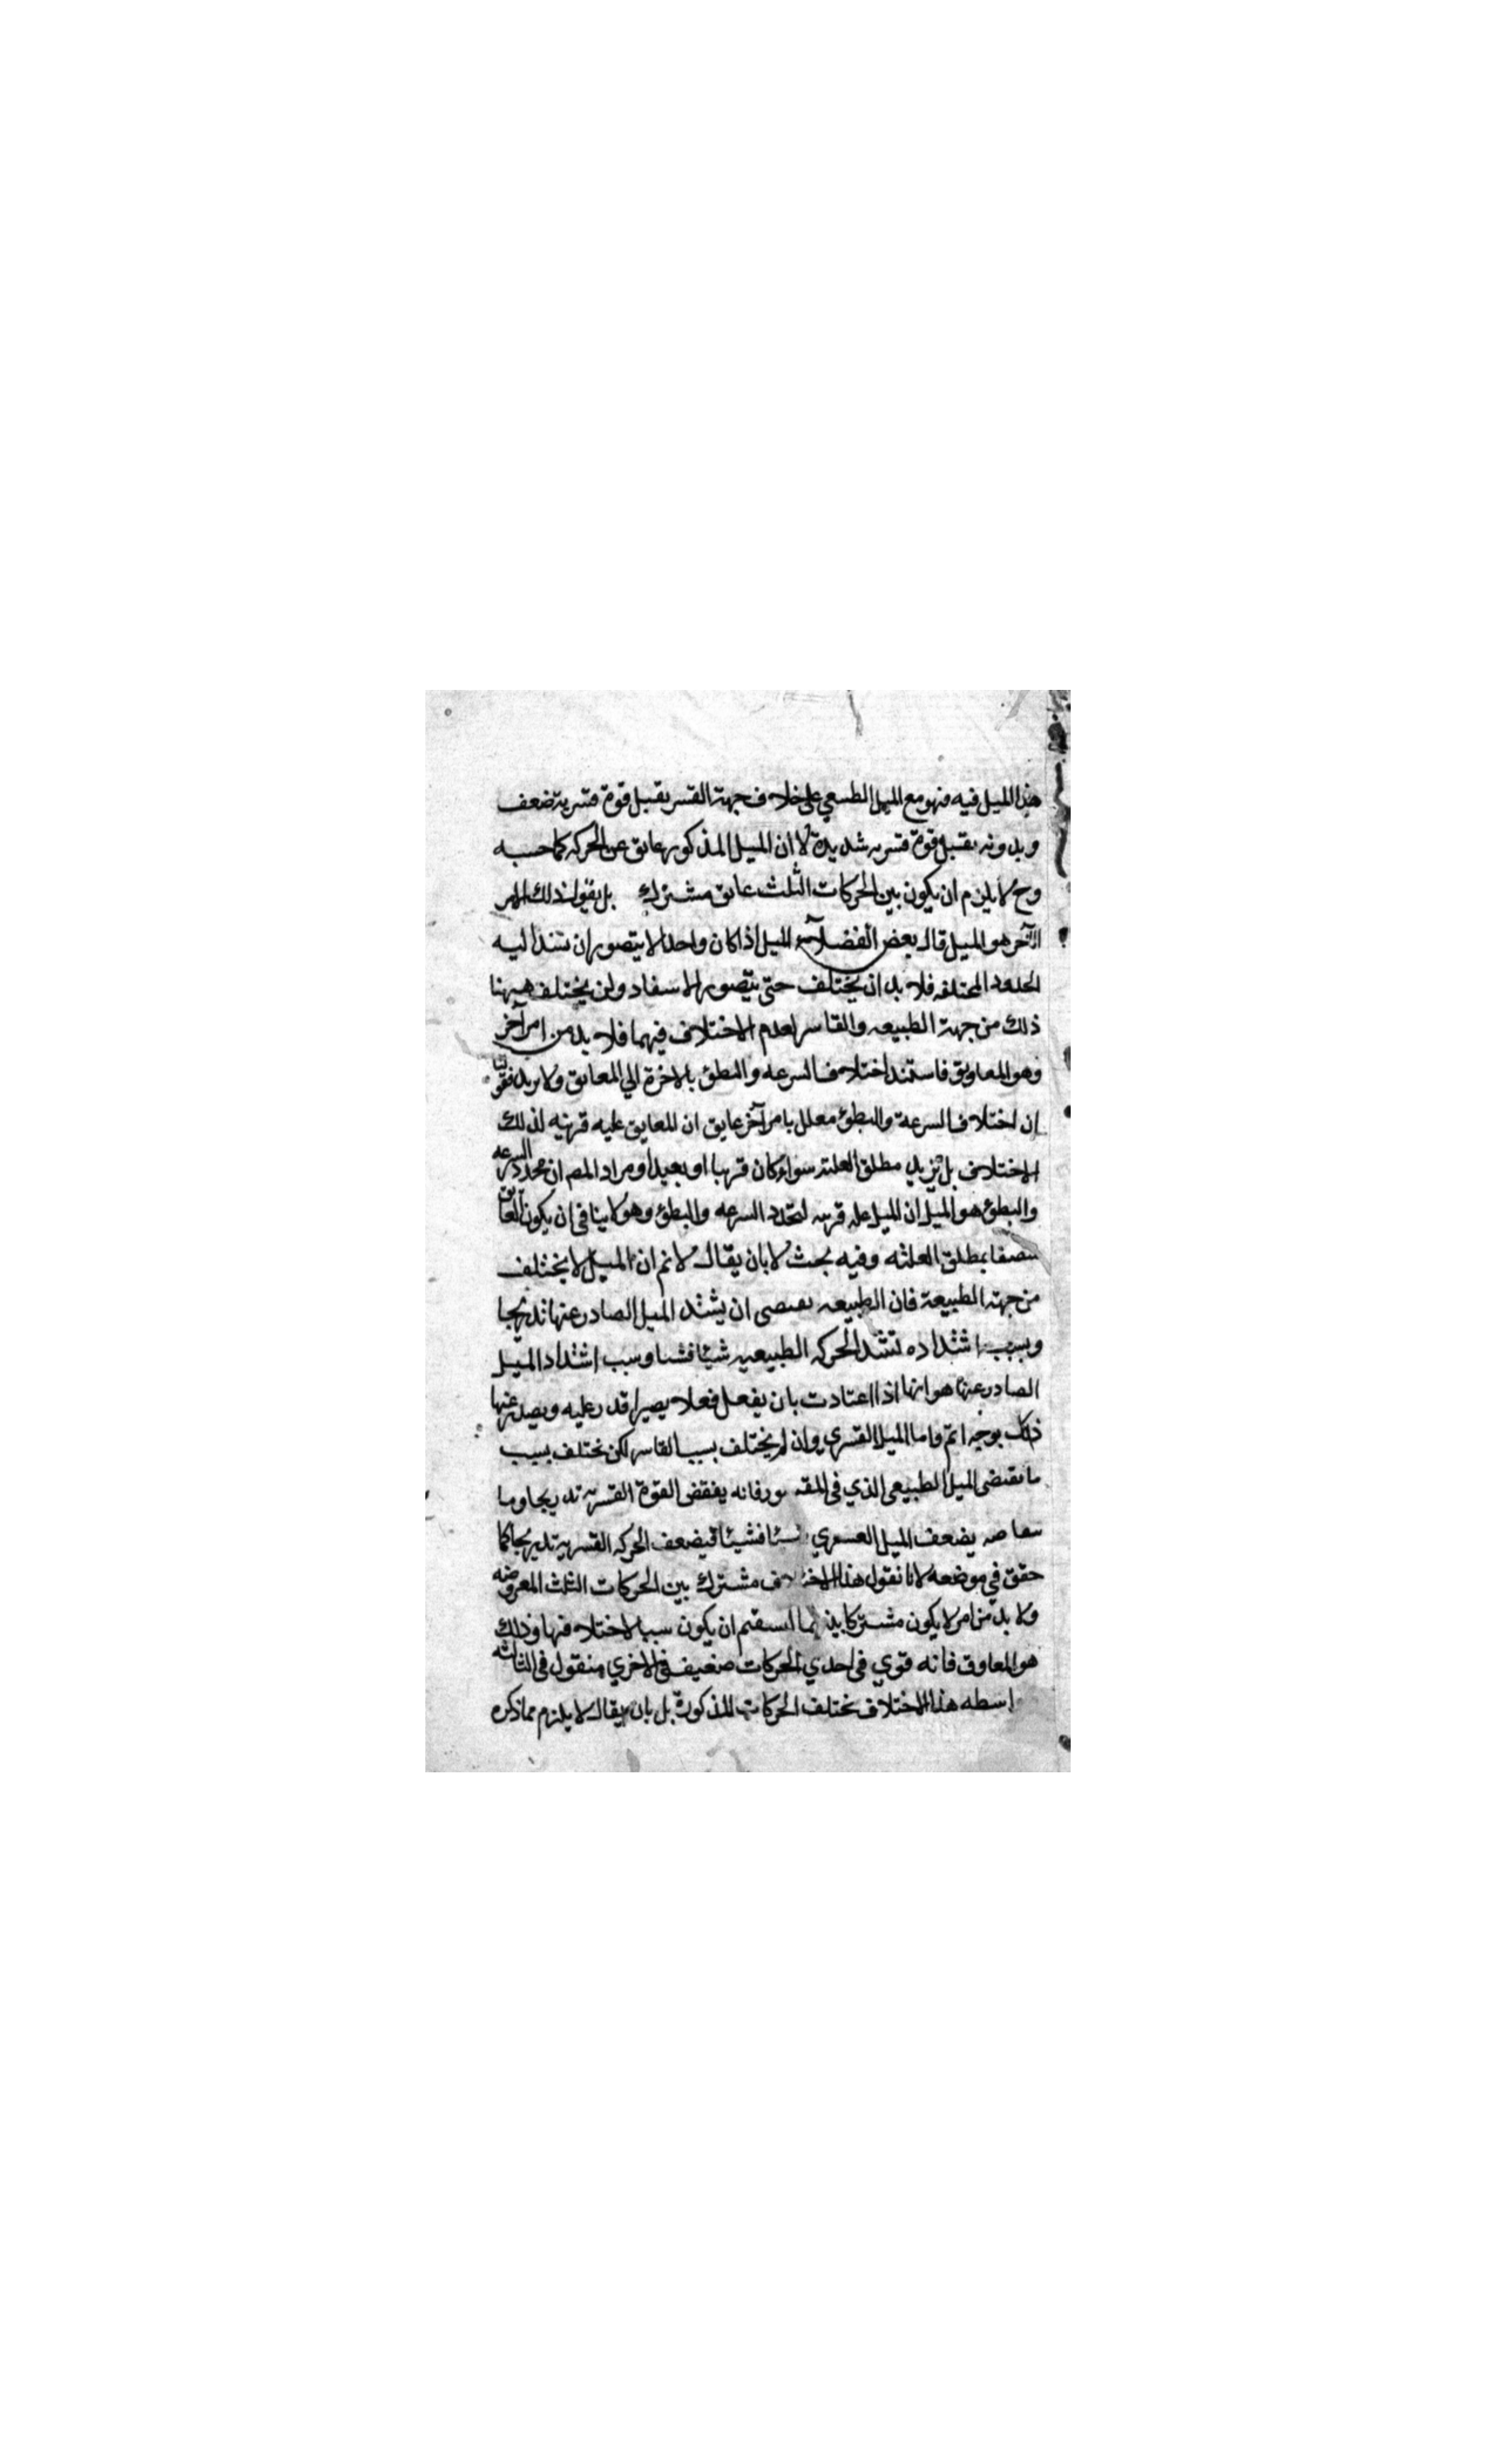 هذا الميل فيه فهو مع الميل الطبيعي على خلاف جهة القسر يقبل قوة قسرية ضعف
وبدونه يقبل قوة قسريه شديدة لا ان الميل المذكور عايق عن الحركه كما حسبه
وح لا يلزم ان يكون بين الحركات الثلث عايق مشترك بل يقول ذلك الامر
الآخر هو الميل قال بعض الفضلاء الميل اذا كان واحدا لا يتصور ان تسند اليه
الحدود المختلفه فلا بد ان يختلف حتى يتصور الاسناد ولن يختلف ههنا
ذلك من جهة الطبيعه والقاسر لعدم الاختلاف فيهما فلا بد من امر آخر
وهو المعاوق فاستند اختلاف السرعه والبطئ بالاخرة الي المعايق ولا يريد بقولنا
ان اختلاف السرعة والبطئ معلل بامر آخر عايق ان للعايق عليه قريبه لذلك
الاختلاف بل نريد مطلق العلته سواء كان قريبا او بعيدا ومراد المص ان محدد السرعه
والبطئ هو الميل ان الميل عله قريبه لتحدد السرعه والبطئ وهو لا ينافي ان يكون العايق
متصفا بمطلق العلته وفيه بحث لا بان يقال لا نم ان الميل لا يختلف
من جهة الطبيعة فان الطبيعه تقتضى ان يشتد الميل الصادر عنها تدريجا
وبسبب اشتداده تشتد الحركه الطبيعيه شيئا فشيئا وسبب اشتداد الميل
الصادر عنها هو انها اذا اعتادت بان يفعل فعلا يصير اقدر عليه ويصدر عنها
ذلك بوجه اتم واما الميل القسري وان لم يختلف بسبب القاسر لكن يختلف بسبب
ما يقتضى الميل الطبيعي الذي في المقسور فانه القوة القسريه تدريجا وما
يضعف الميل القسري شيئا فشيئا فيضعف الحركه القسرية تدريجا كما
حقق في موضعه لانا نقول هذا الاختلاف مشترك بين الحركات الثلث المعروضه
ولا بد من امر لا يكون مشتركا بينهما ليستقيم ان يكون سببا لاختلافها وذلك
هو المعاوق فانه قوي في احدي الحركات ضعيف في الاخري منقول في الثالثه
هذا الاختلاف يختلف الحركات المذكورة بل بان يقال لا يلزم مما ذكره